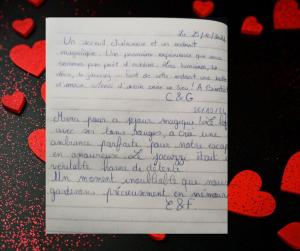 Le 25/10/2024
Un accueil chaleureux et un endroit
magnifique. Une première expérience que nous
sommes pas prêt d'oublier. Les lumières, la
déco, le jacuzzi, tout de cet endroit une bulle
d'amour. Merci d'avoir créé ce lieu! A Bientôt
C & G
Merci pour ce séjour magique! Le
avec son tons rouges, a crée une
ambiance parfaite pour notre escap
en amoureux. Le jacuzzi était
véritable havre de détente
Un moment inoubliable que nous
garderons précieusement en mémoire
E & F